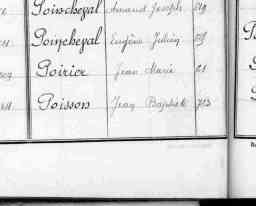 Poincheval Amand Joseph 219
Poincheval Eugène Julien
Poirier Jean Marie 21
Poisson Jean Baptiste 713